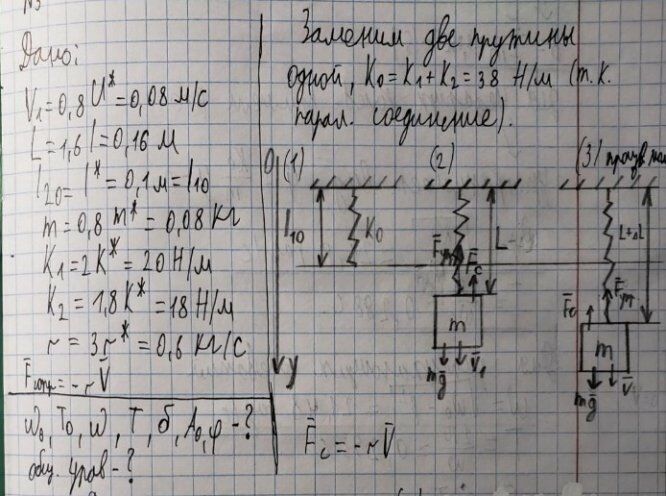 N3
Дано:
V₁=0,8 U*=0,08 м/с
L=1,6 l=0,16 м
l₂₀= l*=0,1м=l₁₀
m=0,8 m*=0,08 кг
K₁=2K*=20 Н/м
K₂=1,8K*=18 Н/м
r=3r*=0,6 кг/с
F̄сопр=-rV̄
ω₀, T₀, ω, T, δ, A₀, φ-?
общ. урав-?
Заменим две пружины
одной, K₀=K₁+K₂=38 Н/м (т.к.
парал. соединение).
0 (1) (2) (3)
l₁₀ K₀ L L+ΔL
F̄упр F̄c F̄c F̄упр
m m
mḡ V̄₁ mḡ V̄
y
F̄c=-rV̄